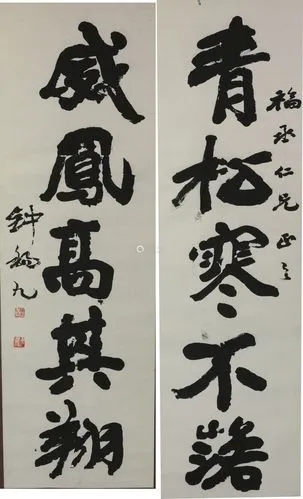 青松寒不落
福丞仁兄正之
威鳳高其翔
鍾九